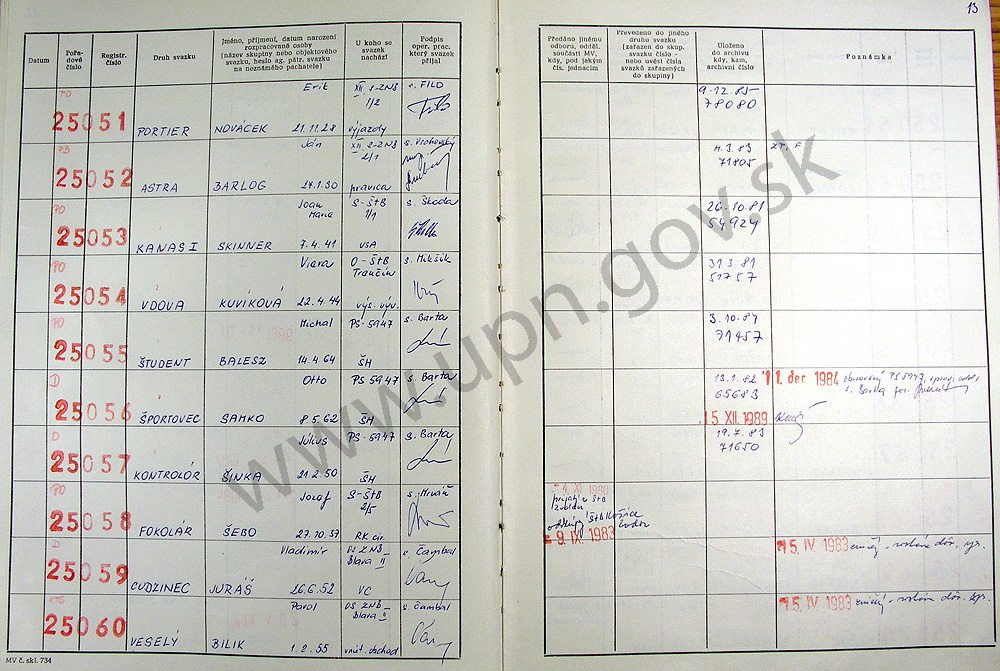 13
Datum
Pořa-
dové
číslo
Registr.
číslo
Druh svazku
Jméno, příjmení, datum narození
rozpracované osoby
(název skupiny nebo objektového
svazku, heslo ag. pátr. svazku
na neznámého pachatele)
U koho se
svazek
nachází
Podpis
oper. prac.
který svazek
přijal
Předáno jinému
odboru, odděl.
součásti MV,
kdy, pod jakým
čís. jednacím
Převedeno do jiného
druhu svazku
(zařazen do skup.
svazku číslo -
nebo uvést čísla
svazků zařazených
do skupiny)
Uloženo
do archivu
kdy, kam,
archivní číslo
Poznámka
PO
25051
PORTIER
Erik
NOVÁČEK 21.11.28
XII. S-ZNB
1/2
výjazdy
s. FILO
9.12.85
78080
PO
25052
ASTRA
Ján
BARLOG 27.1.30
XII S-ZNB
2/1
pravica
s. Vrchovský
4.3.83
71805
PO
25053
KANASI
Joan
Marie
SKINNER 7.4.41
S-ŠtB
1/1
USA
s. Škoda
26.10.81
54924
PO
25054
VDOVA
Viera
KUVIKOVÁ 22.4.44
O-ŠtB
Trenčín
výs. výv.
s. Mikšík
31.3.81
51757
PO
25055
ŠTUDENT
Michal
BALESZ 14.4.64
PS-5947
ŠH
s. Barta
3.10.84
71457
D
25056
ŠPORTOVEC
Otto
SAMKO 8.5.62
PS 5947
ŠH
s. Barta
13.1.82
65683
11. dec 1984
15. XII. 1989
D
25057
KONTROLÓR
Július
ŠINKA 21.2.50
PS-5947
ŠH
s. Barta
19.7.83
71650
PO
25058
FOKOLÁR
Jozef
ŠEBO 27.10.57
S-ŠtB
2/5
RK cir.
-4. XI. 1980
ŠtB Košice
-9. IX. 1983
D
25059
CUDZINEC
Vladimír
JURÁŠ 26.6.52
OS ZNB
Blava II
VC
s. Čambal
15. IV 1983
25060
VESELÝ
Pavol
BILIK 1.2.55
OS ZNB
Blava II
vnút. obchod
s. Čambal
15. IV 1983
MV č. skl. 734
www.upn.gov.sk